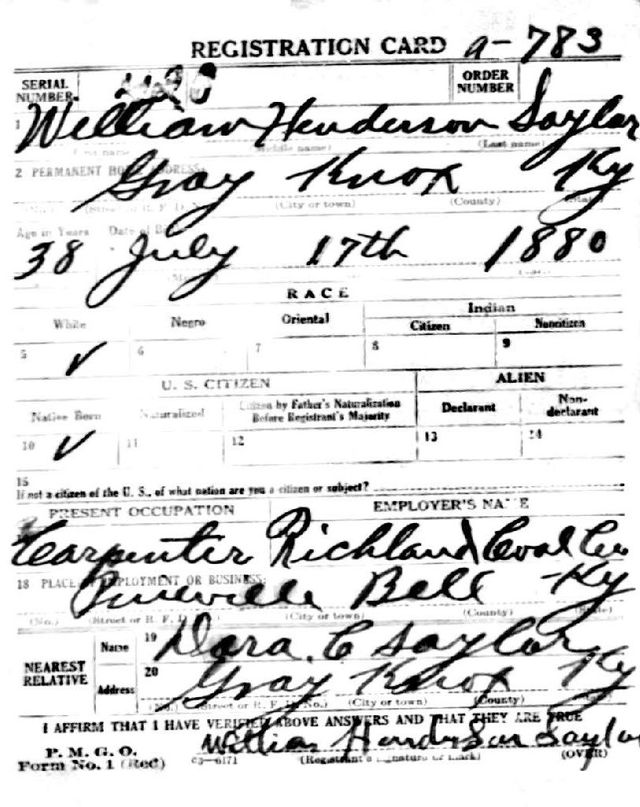 REGISTRATION CARD a-783
SERIAL NUMBER ORDER NUMBER
1 William Henderson Saylor
(First name) (Middle name) (Last name)
2 PERMANENT HOME ADDRESS:
Gray Knox Ky
(No.) (Street or R. F. D. No.) (City or town) (County) (State)
Age in Years Date of Birth
38 July 17th 1880
RACE
White Negro Oriental Indian
Citizen Noncitizen
5 ✓ 6 7 8 9
U. S. CITIZEN ALIEN
Native Born Naturalized Citizen by Father's Naturalization Before Registrant's Majority Declarant Non-declarant
10 ✓ 11 12 13 14
15
If not a citizen of the U. S., of what nation are you a citizen or subject?
PRESENT OCCUPATION EMPLOYER'S NAME
Carpenter Richland Coal Co
18 PLACE OF EMPLOYMENT OR BUSINESS:
Pineville Bell Ky
(No.) (Street or R. F. D. No.) (City or town) (County) (State)
NEAREST RELATIVE
Name 19 Dora. C Saylor
Address 20 Gray Knox Ky
(No.) (Street or R. F. D. No.) (City or town) (County)
I AFFIRM THAT I HAVE VERIFIED ABOVE ANSWERS AND THAT THEY ARE TRUE
P. M. G. O.
Form No. 1 (Red) 03—6171 William Henderson Saylor
(Registrant's signature or mark) (OVER)